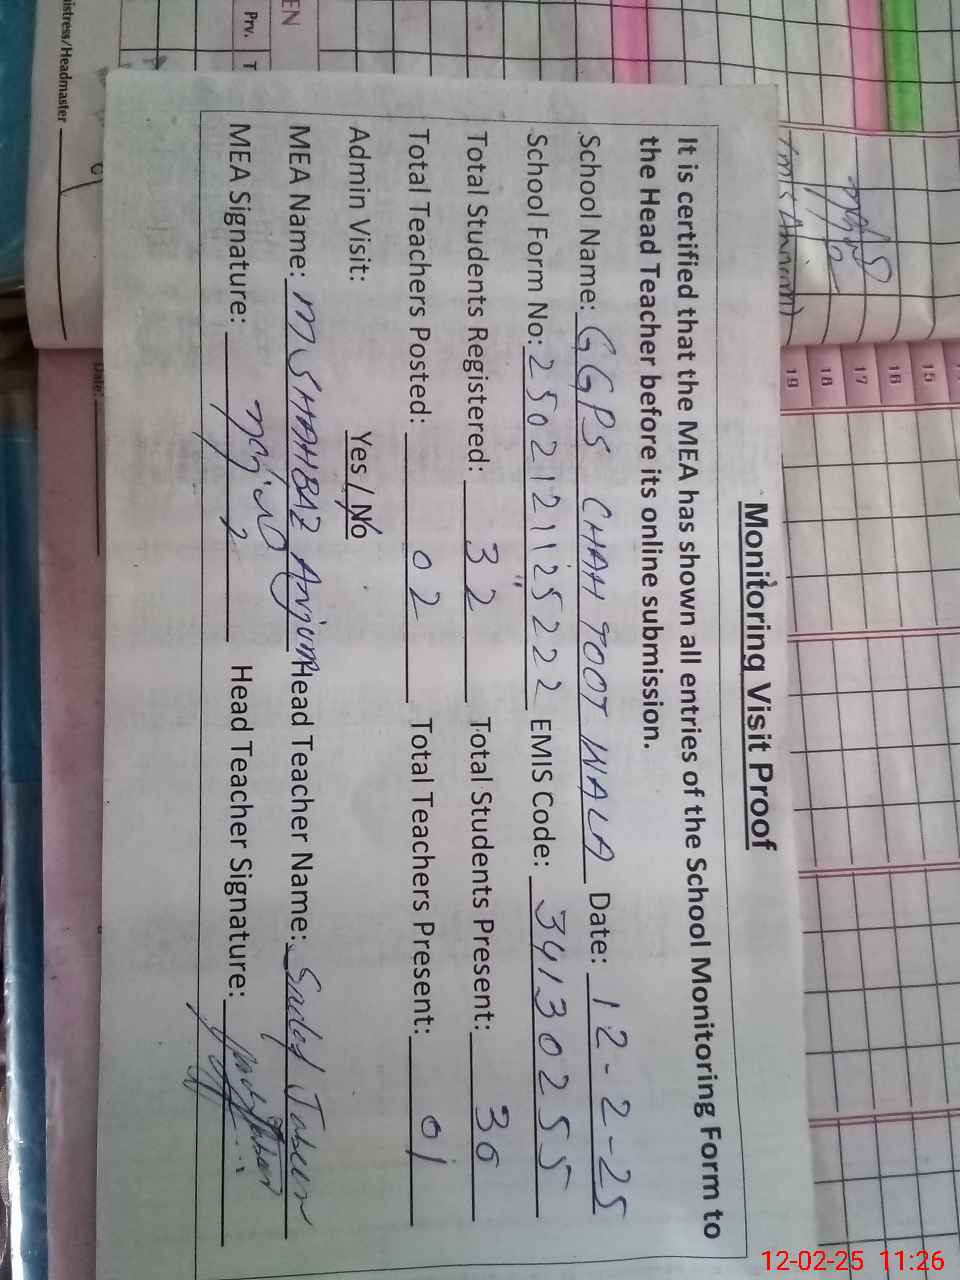 Monitoring Visit Proof
It is certified that the MEA has shown all entries of the School Monitoring Form to
the Head Teacher before its online submission.
School Name: GGPS CHAH TOOT WALA Date: 12-2-25
School Form No: 25021212522 EMIS Code: 34130255
Total Students Registered: 32 Total Students Present: 30
Total Teachers Posted: 02 Total Teachers Present: 01
Admin Visit: Yes / No
MEA Name: M SHAHBAZ Anjum Head Teacher Name:
MEA Signature: Head Teacher Signature:
istress/Headmaster
Prv. T
EN
Date:
15
16
17
18
19
12-02-25 11:26